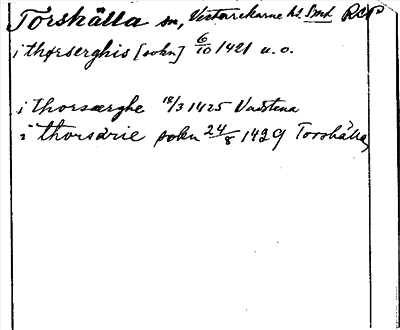 Torshälla sn, Västerrekarne hd Smd RAP
i thorserghis [sokn] 6/10 1421 u. o.
i thorsærghe 18/3 1425 Vadstena
i thorsærie sokn 24/8 1429 Torshälla